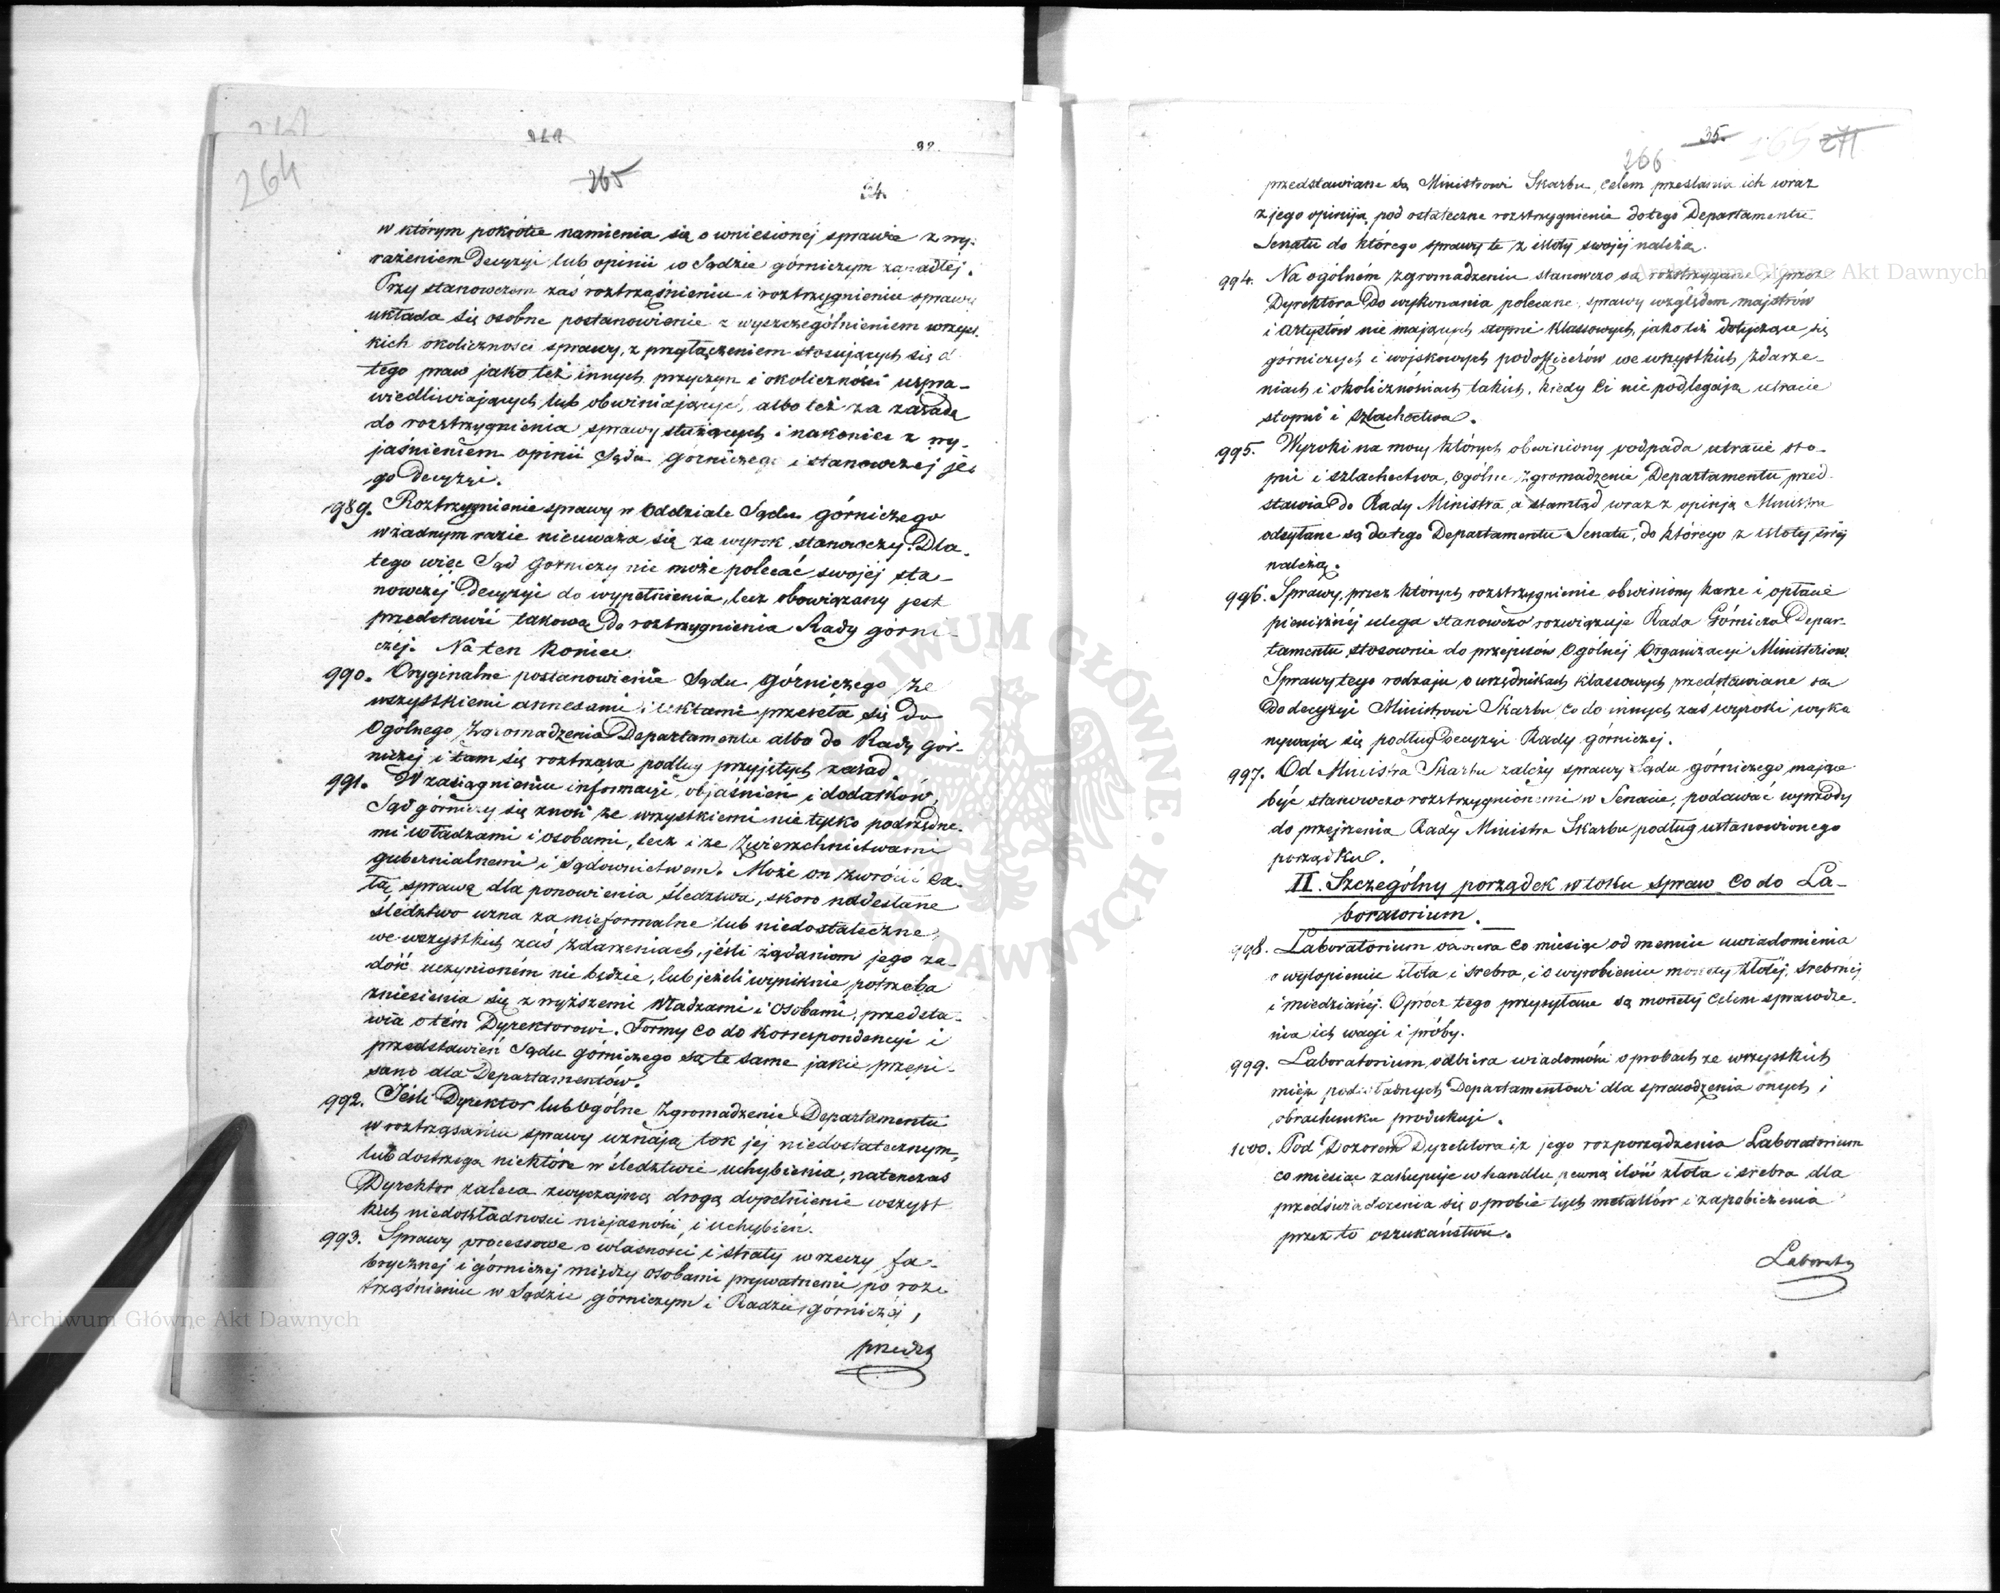 264
265
34.
w którym pokrótce namienia się o wniesionej sprawie z wy-
rażeniem Decyzyi lub opinii w Sądzie górniczym zapadłej.
Przy stanowczem zaś roztrząśnieniu i roztrzygnieniu sprawy
układa się osobne postanowienie z wyszczególnieniem wszyst-
kich okoliczności sprawy, z przyłączeniem stosujących się d
tego praw jako też innych przyczyn i okoliczności uspra-
wiedliwiających lub obwiniających, albo też za zasadę
do rozstrzygnienia sprawy służących i nakoniec z wy-
jaśnieniem opinii Sądu górniczego i stanowczej je-
go Decyzyi.
989. Roztrzygnienie sprawy w Oddziale Sądu górniczego
w żadnym razie nieuważa się za wyrok stanowczy. Dla-
tego więc Sąd Górniczy nie może polecać swojej sta-
nowczej Decyzyi do wypełnienia, lecz obowiązany jest
przedstawić takową do roztrzygnienia Rady górni-
czej. Na ten koniec
990. Oryginalne postanowienie Sądu górniczego ze
wszystkiemi annexami i aktami przeséła się do
Ogólnego Zgromadzenia Departamentu albo do Rady gór-
niczej i tam się roztrząsa podług przyjętych zasad.
991. W zasiągnieniu informacyi, objaśnień i dodatków,
Sąd górniczy się znosi ze wszystkiemi nie tylko podrzędne-
mi władzami i osobami, lecz i ze Zwierzchnictwami
gubernialnemi i Sądownictwem. Może on zwrócić ca-
łą sprawę dla ponowienia śledztwa, skoro nadesłane
śledztwo uzna za nieformalne lub niedostateczne,
we wszystkich zaś zdarzeniach, jeśli żądaniom jego za-
dość uczynioném nie będzie, lub jeżeli wyniknie potrzeba
zniesienia się z wyższemi Władzami i osobami, przedsta-
wia o tém Dyrektorowi. Formy co do Korrespondencyi i
przedstawień Sądu górniczego są te same jakie przepi-
sano dla Departamentów.
992. Jeśli Dyrektor lub Ogólne Zgromadzenie Departamentu
w roztrząsaniu sprawy uznają tok jej niedostatecznym,
lub dostrzegą niektóre w śledztwie uchybienia, natenczas
Dyrektor zaleca zwyczajną drogą dopełnienie wszyst
kich niedokładności niejasności i uchybień.
993. Sprawy processowe o własności i straty w rzeczy fa-
brycznej i górniczej między osobami prywatnemi po roz-
trząśnieniu w Sądzie górniczym i Radzie górniczéj,
przedst
35.
266
265
271
przedstawiane są Ministrowi Skarbu, celem przesłania ich wraz
z jego opiniją pod ostateczne rozstrzygnienie do tego Departamentu
Senatu do którego sprawy te z istoty swojej należą.
994. Na ogólném zgromadzeniu stanowczo są rozstrzygane i przez
Dyrektora do wykonania polecane, sprawy względem majstrów
i artystów nie mających stopni klassowych, jako też dotyczące się
górniczych i wojskowych podofficerów we wszystkich zdarze-
niach i okolicznościach takich, kiedy ci nie podlegają utracie
stopni i szlachectwa.
995. Wyroki na mocy których obwiniony podpada utracie sto-
pni i szlachectwa, ogólne zgromadzenie Departamentu przed-
stawia do Rady Ministra, a stamtąd wraz z opiniją Ministra
odsyłane są do tego Departamentu Senatu, do którego z istoty swéj
należą.
996. Sprawy, przez których rozstrzygnienie obwiniony karze i opłacie
pieniężnéj ulega stanowczo rozwiązuje Rada Górnicza Depar-
tamentu, stosownie do przepisów Ogólnéj Organizacyi Ministeriów.
Sprawy tego rodzaju o urzędnikach klassowych przedstawiane są
do decyzyi Ministrowi Skarbu, co do innych zaś wyroki wyko
nywają się podług Decyzyi Rady górniczej.
997. Od Ministra Skarbu zależy sprawy Sądu górniczego mające
być stanowczo rozstrzygnionemi w Senacie, podawać wprzódy
do przejrzenia Rady Ministra Skarbu podług ustanowionego
porządku.
II. Szczególny porządek w toku spraw co do La-
boratorium.
998. Laboratorium odbiera co miesiąc od mennic uwiadomienia
o wytopieniu złota i srebra, i o wyrobieniu monety złotéj, srebrnéj
i miedzianéj. Oprócz tego przysyłane są monety celem sprawdze-
nia ich wagi i próby.
999. Laboratorium odbiera wiadomości o probach ze wszystkich
miejsc podwładnych Departamentowi dla sprawdzenia onych i
obrachunku produkcyi.
1000. Pod Dozorem Dyrektora i z jego rozporządzenia Laboratorium
co miesiąc zakupuje w handlu pewną ilość złota i srebra dla
przeświadczenia się o probie tych metallów i zapobieżenia
przez to oszukaństwu.
Laborato
Archiwum Główne Akt Dawnych
Archiwum Główne Akt Dawnych
ARCHIWUM GŁÓWNE AKT DAWNYCH